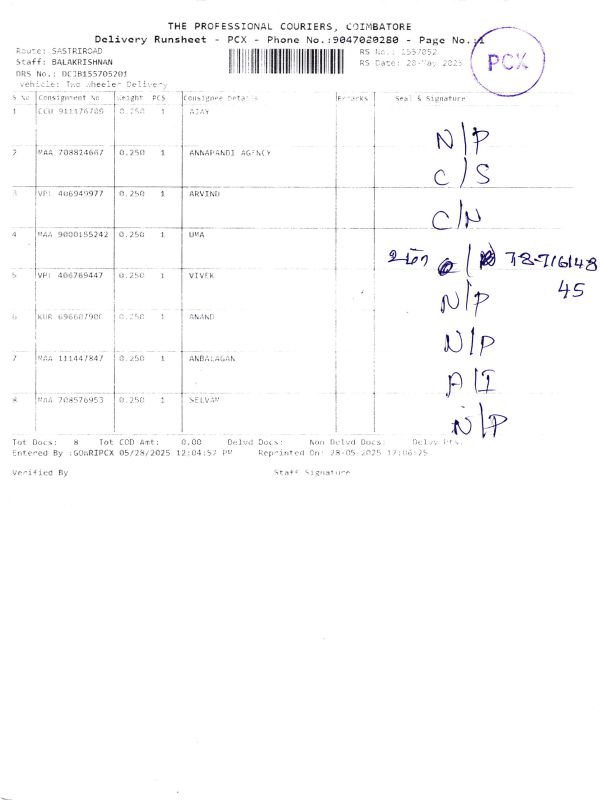 THE PROFESSIONAL COURIERS, COIMBATORE
Delivery Runsheet - PCX - Phone No.:9047020280 - Page No.:1
Route: SASTRIROAD RS No.: 1557052
Staff: BALAKRISHNAN RS Date: 28-May 2025
DRS No.: DCJB155705201
Vehicle: Two Wheeler Delivery
PCX
S No Consignment No Weight PCS Consignee Details Remarks Seal & Signature
1 CCU 911176706 0.250 1 AJAY N/P
2 MAA 708824667 0.250 1 ANNAPANDI AGENCY C/S
3 VPI 406949977 0.250 1 ARVIND C/N
4 MAA 9000155242 0.250 1 UMA 78-716148
45
5 VPI 406769447 0.250 1 VIVEK N/P
6 KUR 0.250 1 ANAND N/P
7 MAA 111447847 0.250 1 ANBALAGAN A/I
8 MAA 708576953 0.250 1 SELVAM N/P
Tot Docs: 8 Tot COD Amt: 0.00 Delvd Docs: Non Delvd Docs: Delvy Pts.
Entered By :GOWRIPCX 05/28/2025 12:04:52 PM Reprinted On: 28-05-2025 12:06:25
Verified By Staff Signature